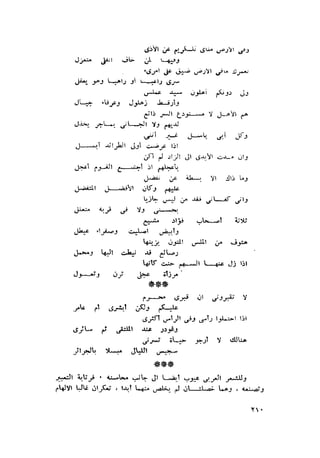 وفى الأرض منأى للكريم عن الأذى
وفيها لمن خاف القلى متعزل
لعمرك ما فى الأرض ضيق على امرىء
سرى راغبا أو راهبا وهو يعقل
ولى دونكم أهلون سيد عملس
وأرقط زهلول وعرفاء جيأل
هم الأهل لا مستودع السر ذائع
لديهم ولا الجانى بما جر يخذل
وكل أبى باسل غير أننى
اذا عرضت أولى الطرائد أبسل
وان مدت الأيدى الى الزاد لم أكن
بأعجلهم اذ أجشع القوم أعجل
وما ذاك الا بسطة عن تفضل
عليهم وكان الأفضل المتفضل
وانى كفانى فقد من ليس جازيا
بحسنى ولا فى قربه متعلل
ثلاثة أصحاب فؤاد مشيع
وأبيض اصليت وصفراء عيطل
هتوف من الملس المتون يزينها
رصائع قد نيطت اليها ومحمل
اذا زل عنها السهم حنت كأنها
مرزأة عجلى ترن وتعول
***
لا تقبرونى ان قبرى محرم
عليكم ولكن أبشرى أم عامر
اذا احتملوا رأسى وفى الرأس أكثرى
وغودر عند الملتقى ثم سائرى
هنالك لا أرجو حياة تسرنى
سجيس الليالى مبسلا بالجرائر
***
وللشعر العربى عيوب أيضا الى جانب محاسنه ٠ فرتابة التعبير
وتصنعه ، وهما خصلتان لم يخلص منهما أبدا ، تعكران غالبا الالهام
٢١٠